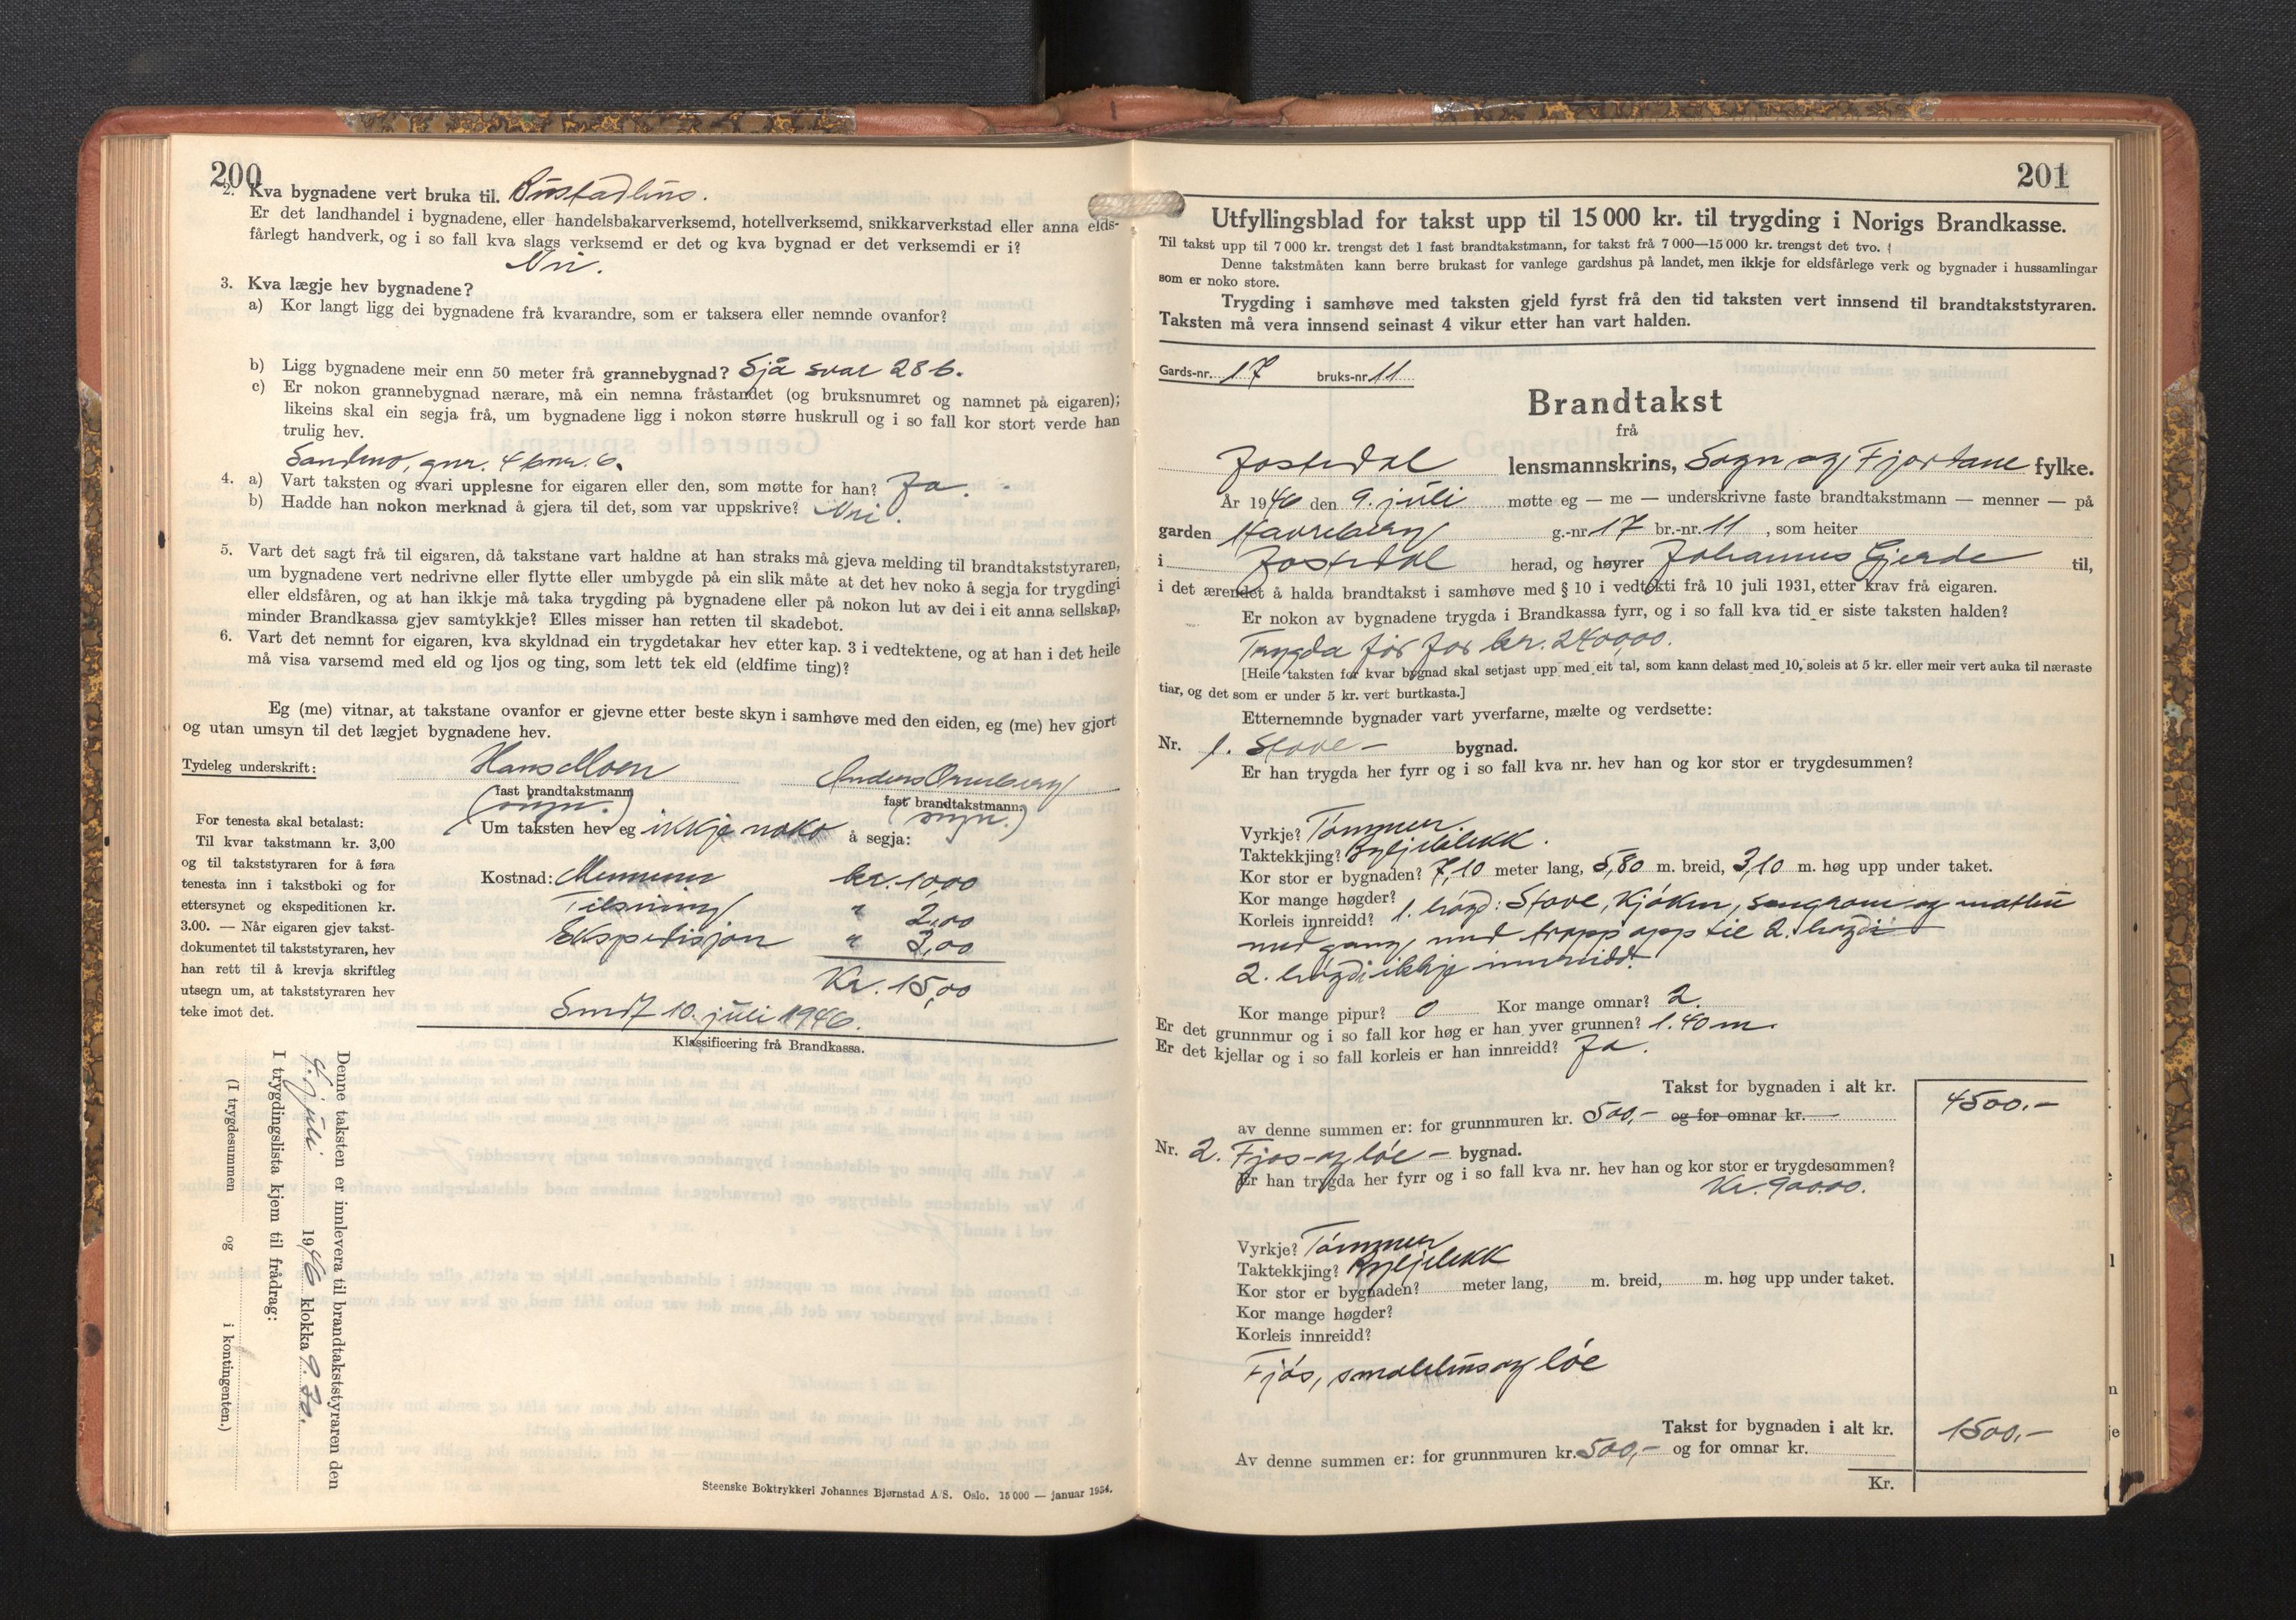 200
2. Kva bygnadene vert bruka til. Bustadhus.
Er det landhandel i bygnadene, eller handelsbakarverksemd, hotellverksemd, snikkarverkstad eller anna elds-
fårlegt handverk, og i so fall kva slags verksemd er det og kva bygnad er det verksemdi er i?
Nei.
3. Kva lægje hev bygnadene?
a) Kor langt ligg dei bygnadene frå kvarandre, som er taksera eller nemnde ovanfor?
b) Ligg bygnadene meir enn 50 meter frå grannebygnad? Sjå svar 2 8 b.
c) Er nokon grannebygnad nærare, må ein nemna fråstandet (og bruksnumret og namnet på eigaren);
likeins skal ein segja frå, um bygnadene ligg i nokon større huskrull og i so fall kor stort verde han
trulig hev.
Sandmo, gnr. 4 bnr. 6.
4. a) Vart taksten og svari upplesne for eigaren eller den, som møtte for han? Ja.
b) Hadde han nokon merknad å gjera til det, som var uppskrive? Nei.
5. Vart det sagt frå til eigaren, då takstane vart haldne at han straks må gjeva melding til brandtakststyraren,
um bygnadene vert nedrivne eller flytte eller umbygde på ein slik måte at det hev noko å segja for trygdingi
eller eldsfåren, og at han ikkje må taka trygding på bygnadene eller på nokon lut av dei i eit anna sellskap,
minder Brandkassa gjev samtykkje? Elles misser han retten til skadebot.
6. Vart det nemnt for eigaren, kva skyldnad ein trygdetakar hev etter kap. 3 i vedtektene, og at han i det heile
må visa varsemd med eld og ljos og ting, som lett tek eld (eldfime ting)?
Eg (me) vitnar, at takstane ovanfor er gjevne etter beste skyn i samhøve med den eiden, eg (me) hev gjort
og utan umsyn til det lægjet bygnadene hev.
Tydeleg underskrift: Hans Moen Anders Ormberg
fast brandtakstmann fast brandtakstmann.
(sign.) (sign.)
Um taksten hev eg ikkje noko å segja:
For tenesta skal betalast:
Til kvar takstmann kr. 3,00
og til takststyraren for å føra
tenesta inn i takstboki og for
ettersynet og ekspeditionen kr.
3.00. — Når eigaren gjev takst-
dokumentet til takststyraren, hev
han rett til å krevja skriftleg
utsegn um, at takststyraren hev
teke imot det.
Kostnad: Mennene kr. 10.00
Tilsyning " 2,00
Ekspedisjon " 3,00
Kr. 15,00
10. juli 1946.
Klassificering frå Brandkassa.
Denne taksten er innlevera til brandtakststyraren den
4. juli 1946 klokka 9.30.
I trygdingslista kjem til frådrag:
(I trygdesummen og i kontingenten.)
Steenske Boktrykkeri Johannes Bjørnstad A/S. Oslo. 15 000 — januar 1934.
201
Utfyllingsblad for takst upp til 15 000 kr. til trygding i Norigs Brandkasse.
Til takst upp til 7 000 kr. trengst det 1 fast brandtakstmann, for takst frå 7 000—15 000 kr. trengst det tvo.
Denne takstmåten kann berre brukast for vanlege gardshus på landet, men ikkje for eldsfårlege verk og bygnader i hussamlingar
som er noko store.
Trygding i samhøve med taksten gjeld fyrst frå den tid taksten vert innsend til brandtakststyraren.
Taksten må vera innsend seinast 4 vikur etter han vart halden.
Gards-nr. 17 bruks-nr. 11
Brandtakst
frå
Jostedal lensmannskrins, Sogn og Fjordane fylke.
År 1946 den 9. juli møtte eg — me — underskrivne faste brandtakstmann — menner — på
garden Havreberg g.-nr 17 br.-nr. 11 , som heiter
i Jostedal herad, og høyrer Johannes Gjerde til,
i det ærendet å halda brandtakst i samhøve med § 10 i vedtekti frå 10 juli 1931, etter krav frå eigaren.
Er nokon av bygnadene trygda i Brandkassa fyrr, og i so fall kva tid er siste taksten halden?
Trygda før for kr. 2400,00.
[Heile taksten for kvar bygnad skal setjast upp med eit tal, som kann delast med 10, soleis at 5 kr. eller meir vert auka til næraste
tiar, og det som er under 5 kr. vert burtkasta.]
Etternemnde bygnader vart yverfarne, mælte og verdsette:
Nr. 1. Stove- bygnad.
Er han trygda her fyrr og i so fall kva nr. hev han og kor stor er trygdesummen?
Vyrkje? Tømmer
Taktekkjing? Bylgjeblekk.
Kor stor er bygnaden? 7,10 meter lang, 5,80 m. breid, 3,10 m. høg upp under taket.
Kor mange høgder?
Korleis innreidd? 1. høgd: Stove, kjøken, sengrom og matbu
med gang, med trapp opp til 2. høgdi
2. høgdi ikkje innreidd.
Kor mange pipur? 0 Kor mange omnar? 2.
Er det grunnmur og i so fall kor høg er han yver grunnen? 1.40 m.
Er det kjellar og i so fall korleis er han innreidd? Ja.
Takst for bygnaden i alt kr. 4500.-
av denne summen er: for grunnmuren kr. 500,- og for omnar kr. -
Nr. 2. Fjos- og løe - bygnad.
Er han trygda her fyrr og i so fall kva nr. hev han og kor stor er trygdesummen?
Kr. 900.00.
Vyrkje? Tømmer
Taktekkjing? Bylgjeblekk
Kor stor er bygnaden? meter lang, m. breid, m. høg upp under taket.
Kor mange høgder?
Korleis innreidd?
Fjøs, smalehus og løe
Takst for bygnaden i alt kr. 1500,-
Av denne summen er: for grunnmuren kr. 500,- og for omnar kr.
Kr.